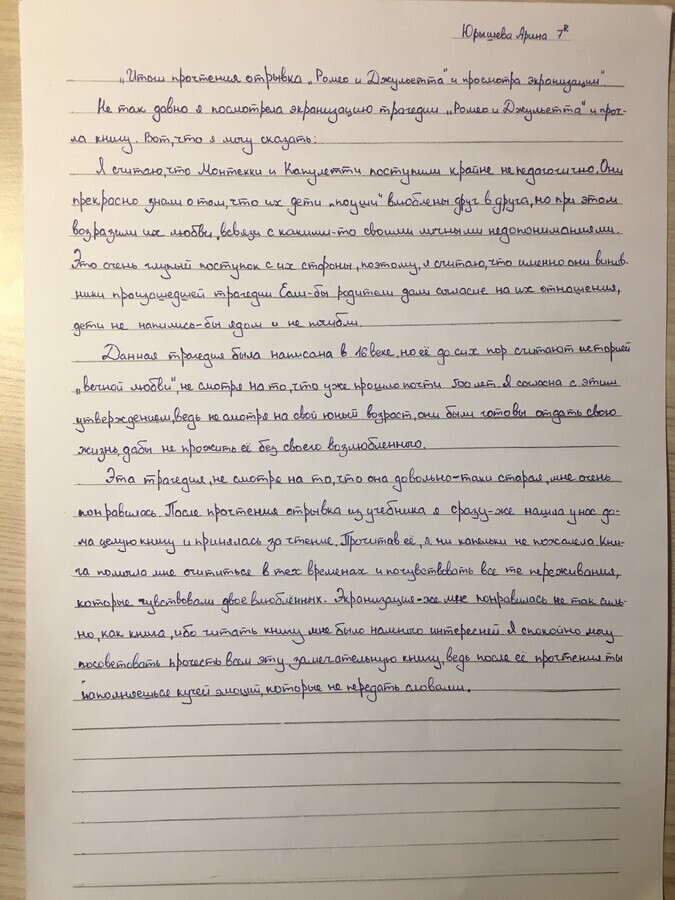 Юрышева Арина 7R
„Итоги прочтения отрывка „Ромео и Джульетта" и просмотра экранизации".
Не так давно я посмотрела экранизацию трагедии „Ромео и Джульетта" и проч-
ла книгу. Вот, что я могу сказать:
Я считаю, что Монтекки и Капулетти поступили крайне непедагогично. Они
прекрасно знали о том, что их дети „по уши" влюблены друг в друга, но при этом
возразили их любви, всвязи с какими-то своими личными недопониманиями.
Это очень глупый поступок с их стороны, поэтому, я считаю, что именно они винов-
ники произошедшей трагедии. Если-бы родители дали согласие на их отношения,
дети не напились-бы ядом и не погибли.
Данная трагедия была написана в 16 веке, но её до сих пор считают историей
„вечной любви", не смотря на то, что уже прошло почти 500 лет. Я согласна с этим
утверждением, ведь не смотря на свой юный возраст, они были готовы отдать свою
жизнь, дабы не прожить её без своего возлюбленного.
Эта трагедия, не смотря на то, что она довольно-таки старая, мне очень
понравилась. После прочтения отрывка из учебника я сразу-же нашла у нас до-
ма целую книгу и принялась за чтение. Прочитав её, я ни капельки не пожалела. Кни-
га помогла мне очутиться в тех временах и почувствовать все те переживания,
которые чувствовали двое влюблённых. Экранизация-же мне понравилась не так силь-
но, как книга, ибо читать книгу мне было намного интересней. Я спокойно могу
посоветовать прочесть всем эту замечательную книгу, ведь после её прочтения ты
наполняешься кучей эмоций, которые не передать словами.